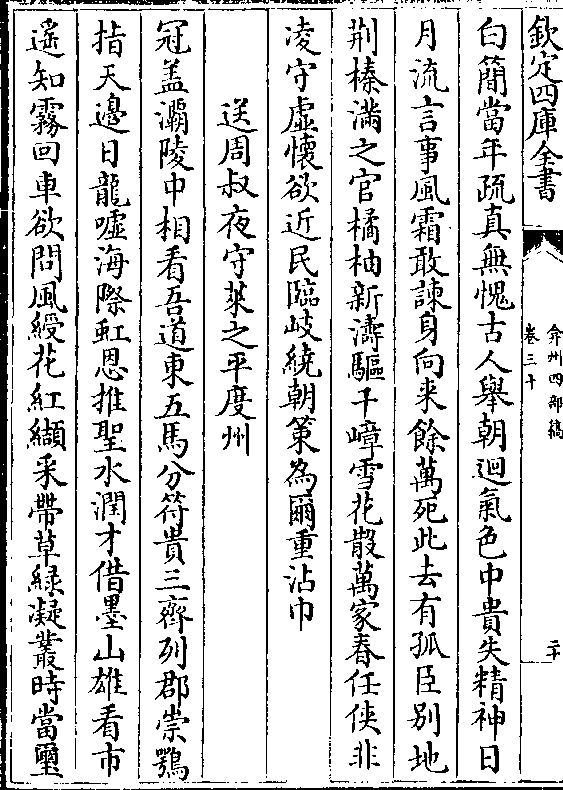 欽定四庫全書
弇州四部稿
卷三十
二十
白簡當年疏真無愧古人舉朝迴氣色中貴失精神日
月流言事風霜敢諫身向来餘萬死此去有孤臣别地
荆榛满之官橘柚新濤驅千嶂雪花散萬家春任俠非
凌守虛懷欲近民臨岐繞朝策為爾重沾巾
送周叔夜守萊之平度州
冠盖灞陵中相看吾道東五馬分符貴三齊列郡崇鶚
指天邊日龍噓海際虹恩推聖水潤才借墨山雄看市
遥知霧回車欲問風綬花紅纈采帶草緑凝叢時當璽